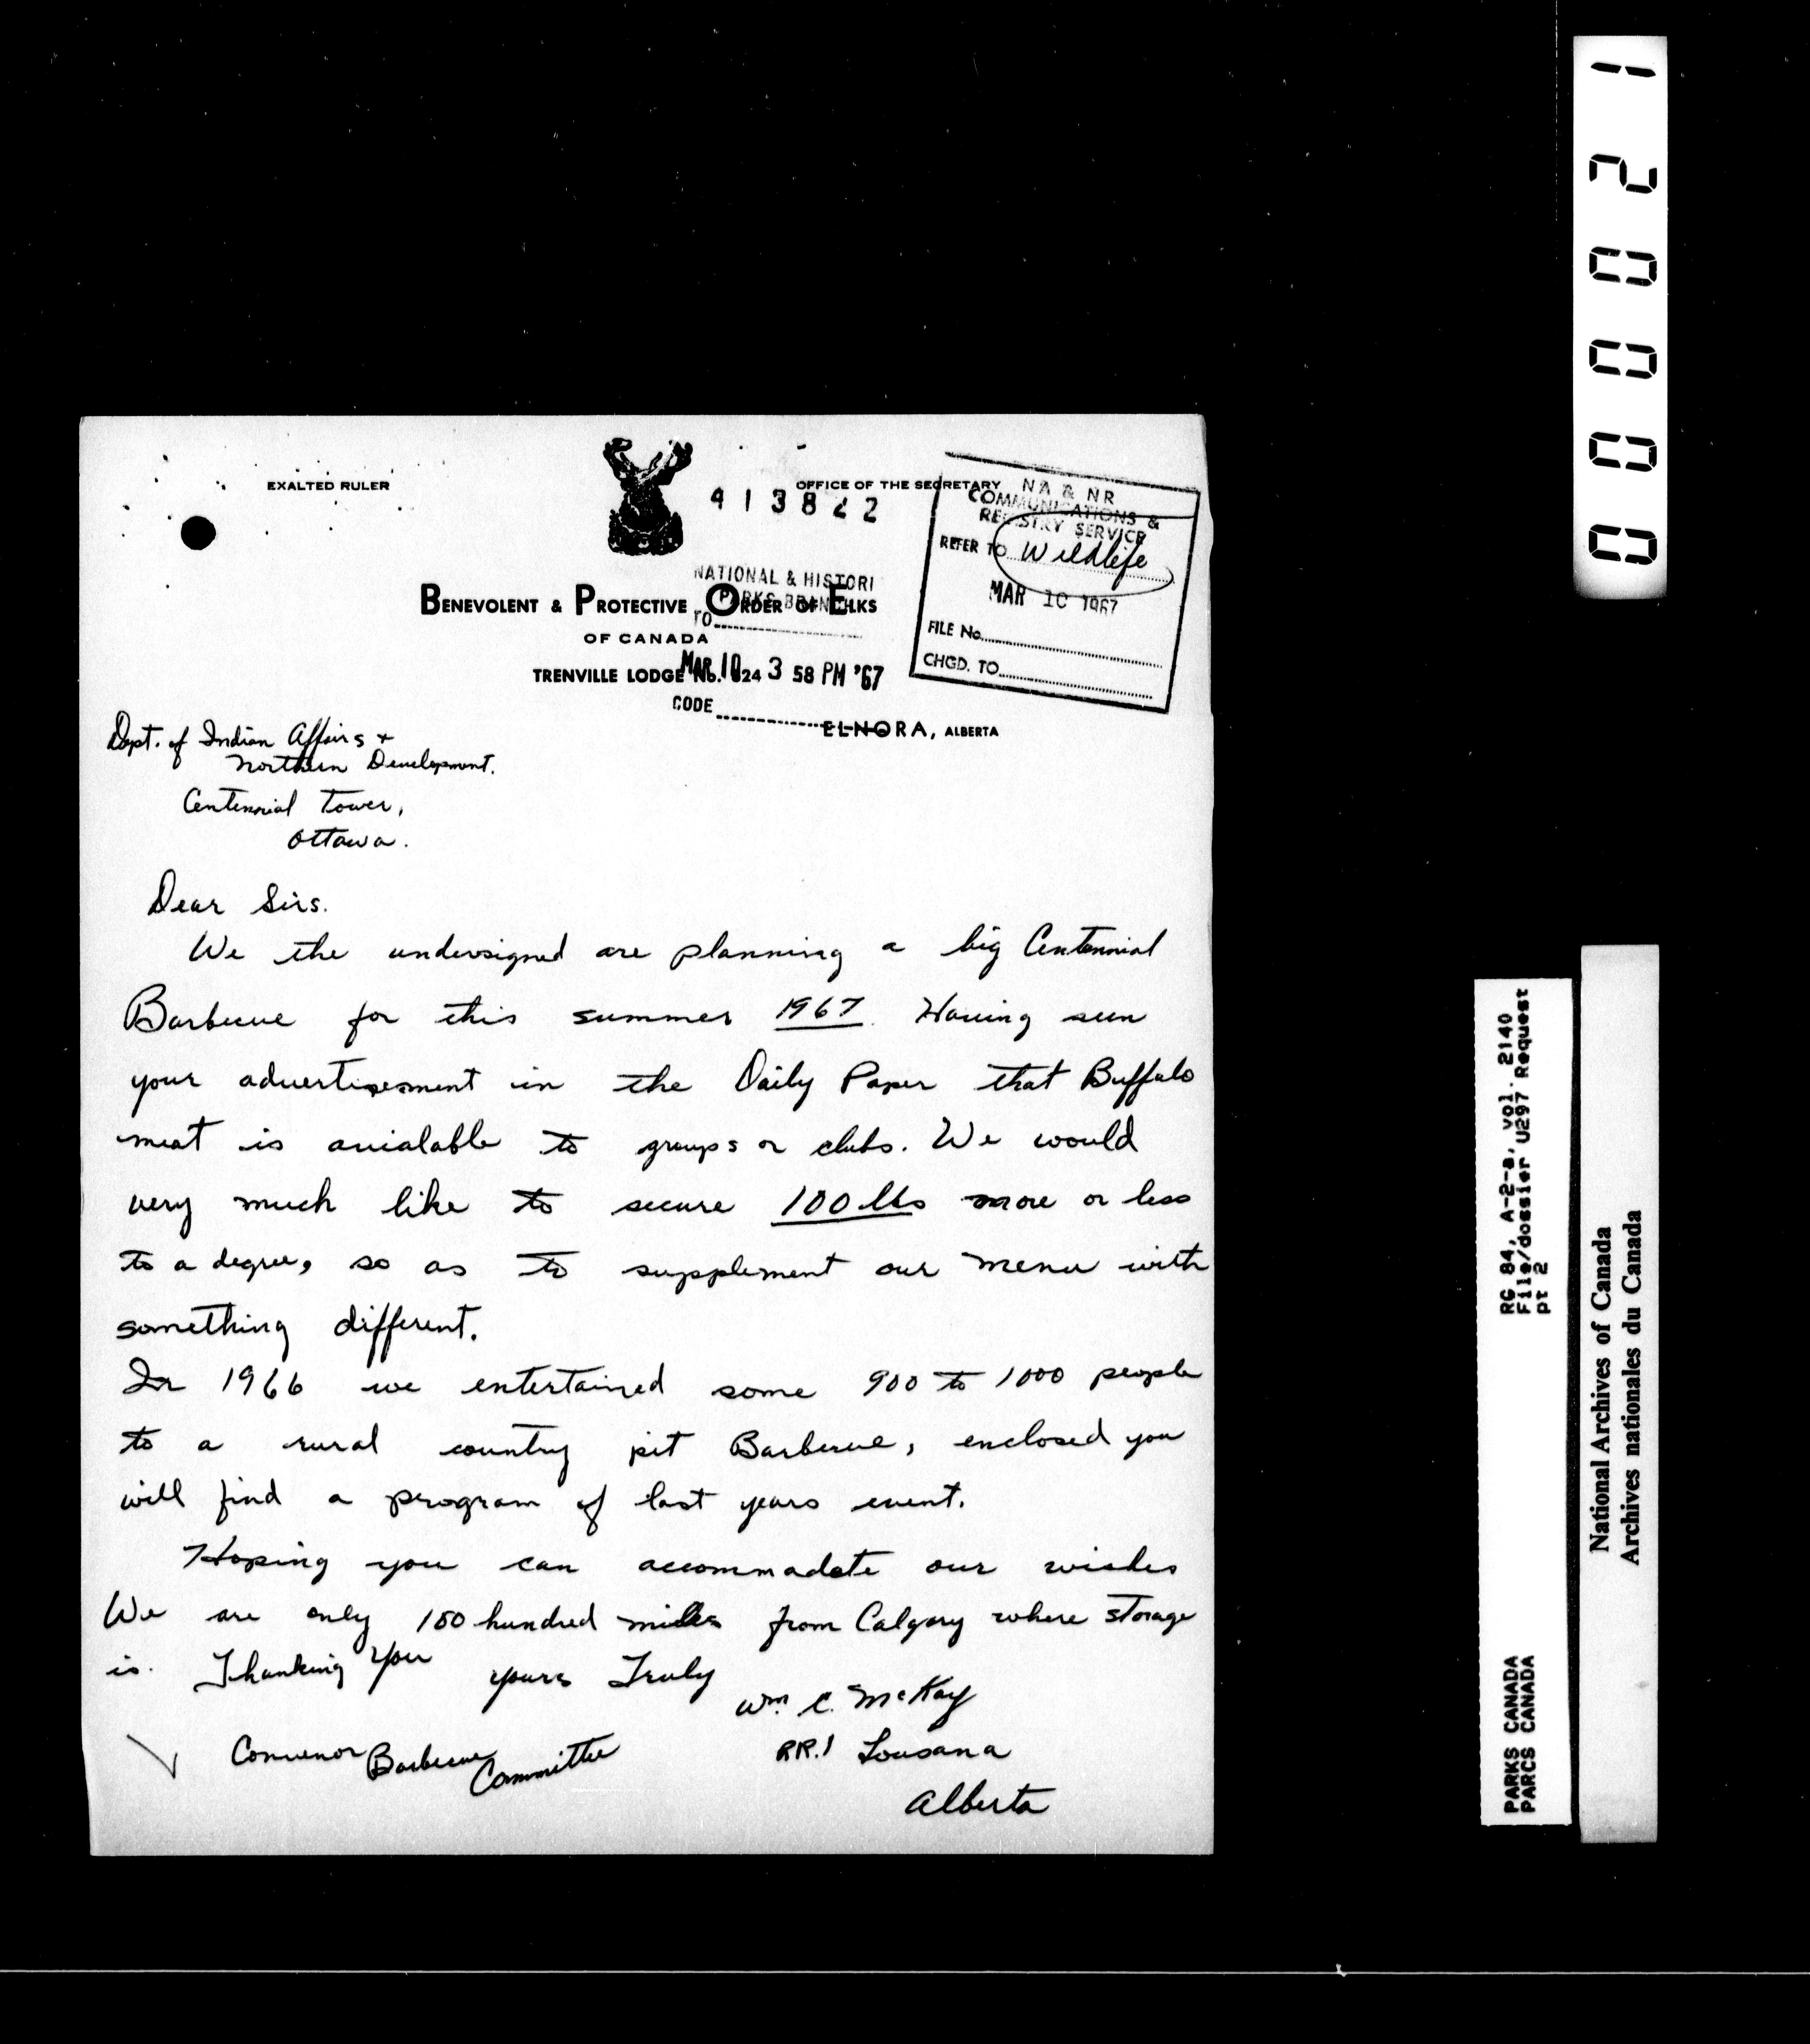 EXALTED RULER
OFFICE OF THE SECRETARY
413822
NA & NR
COMMUNICATIONS &
REGISTRY SERVICE
REFER TO Wildlife
MAR 10 1967
FILE No.
CHGD. TO
NATIONAL & HISTORI
PARKS BRANCH
TO
BENEVOLENT & PROTECTIVE ORDER OF ELKS
OF CANADA
TRENVILLE LODGE No. 24
MAR 10 3 58 PM '67
CODE
ELNORA, ALBERTA
Dept. of Indian Affairs +
Northern Development.
Centennial Tower,
Ottawa.
Dear Sirs.
We the undersigned are planning a big Centennial
Barbecue for this summer 1967. Having seen
your advertisement in the Daily Paper that Buffalo
meat is avialable to groups or clubs. We would
very much like to secure 100 lbs more or less
to a degree, so as to supplement our menu with
something different.
In 1966 we entertained some 900 to 1000 people
to a rural country pit Barbecue, enclosed you
will find a program of last years event.
Hoping you can accommadate our wishes
We are only 100 hundred miles from Calgary where storage
is. Thanking you
yours Truly
Wm. C. McKay
Convenor Barbecue Committee
RR.1 Lousana
Alberta
000021
RG 84, A-2-a, vol. 2140
File/dossier U297 Request
pt 2
PARKS CANADA
PARCS CANADA
National Archives of Canada
Archives nationales du Canada